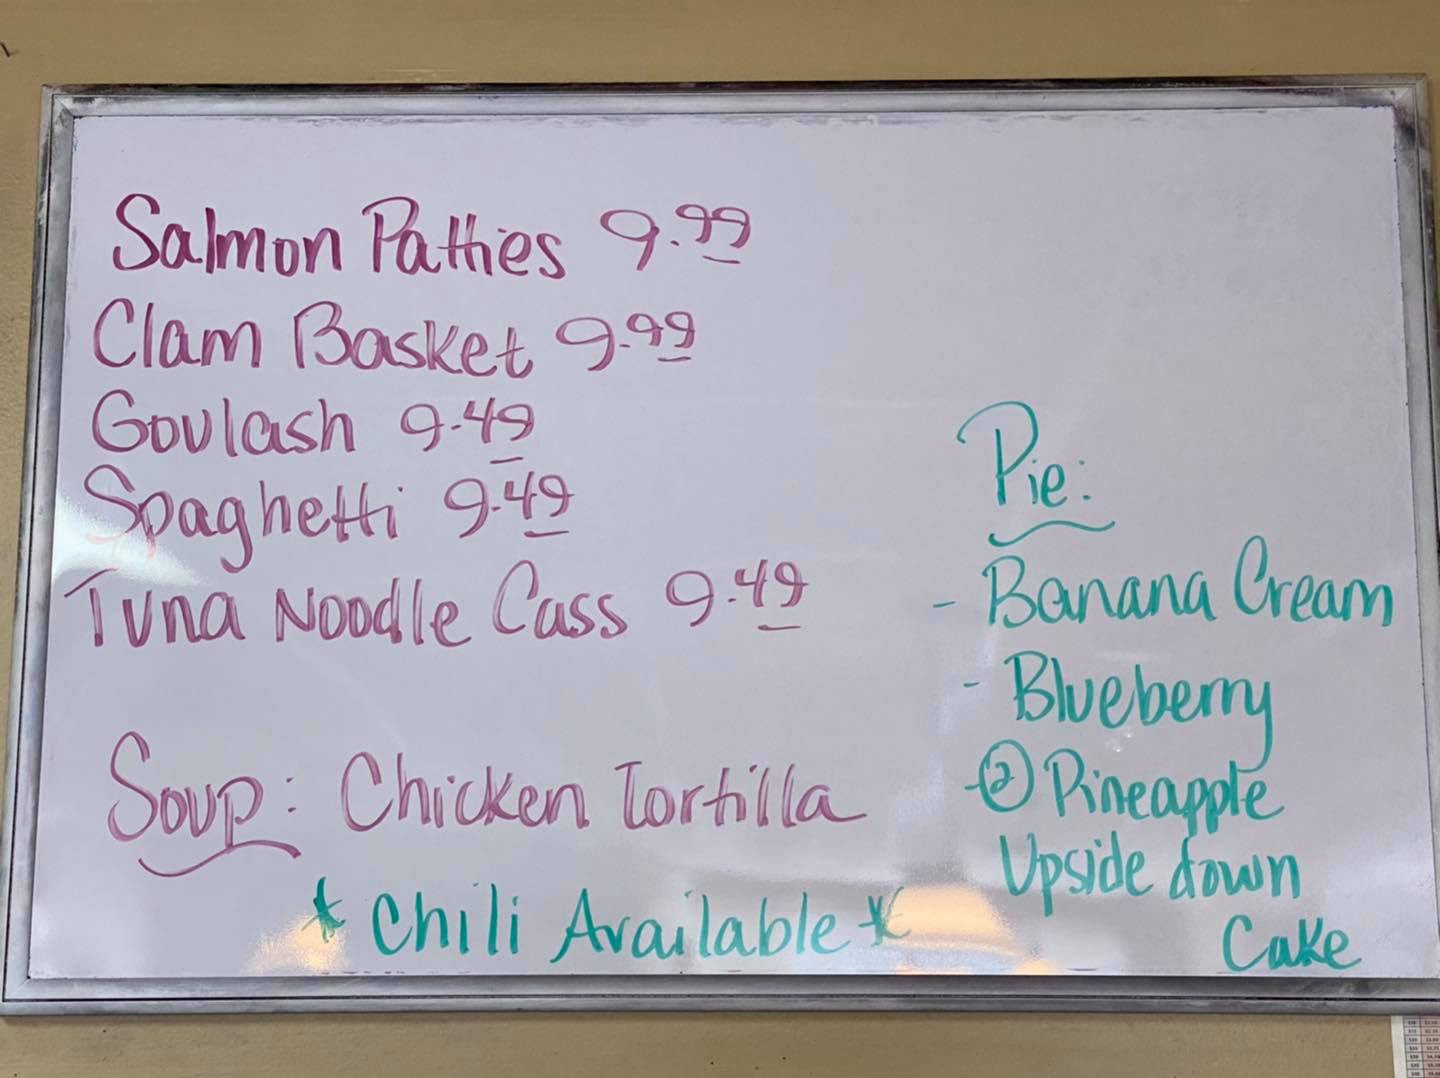 Salmon Patties 9.99
Clam Basket 9.99
Goulash 9.49
Spaghetti 9.49
Tuna Noodle Cass 9.49
Soup: Chicken Tortilla
* Chili Available *
Pie:
- Banana Cream
- Blueberry
- (2) Pineapple
Upside down
Cake